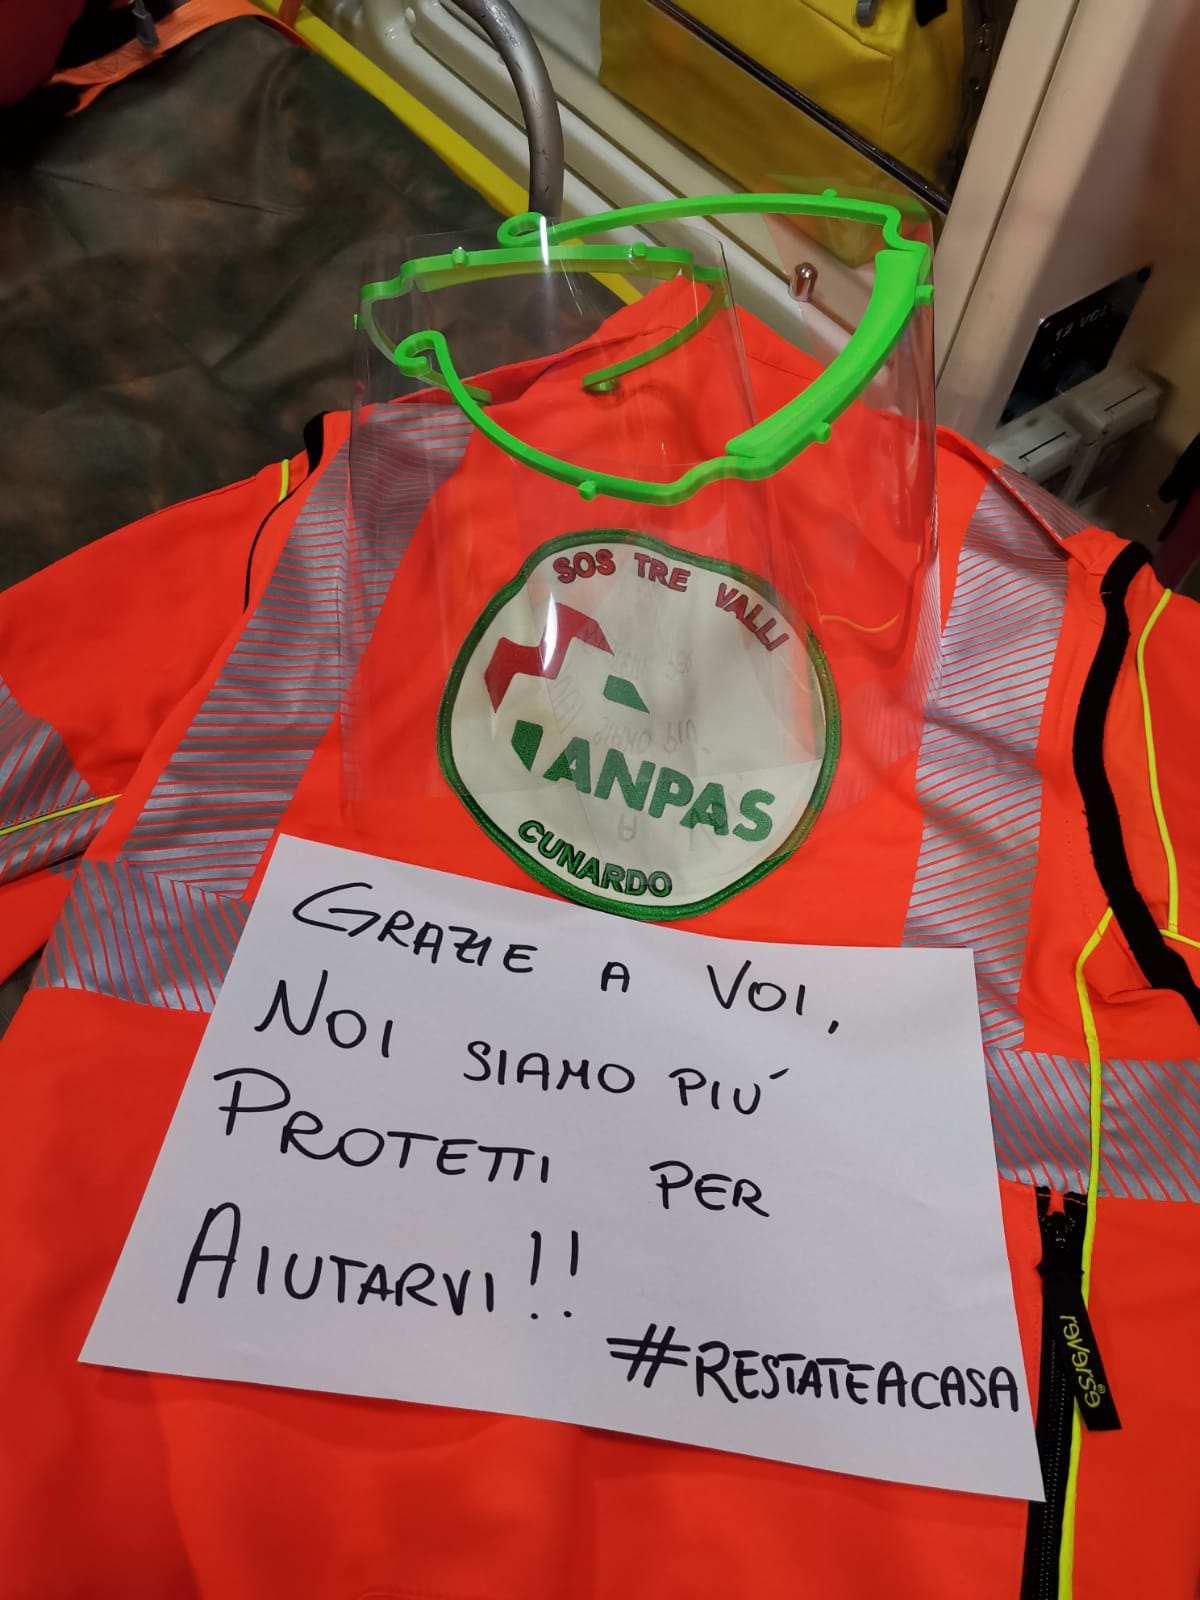 12 VOL
SOS TRE VALLI
ANPAS
CUNARDO
GRAZIE A VOI,
NOI SIAMO PIÚ
PROTETTI PER
AIUTARVI!!
#RESTATEACASA
reverse®